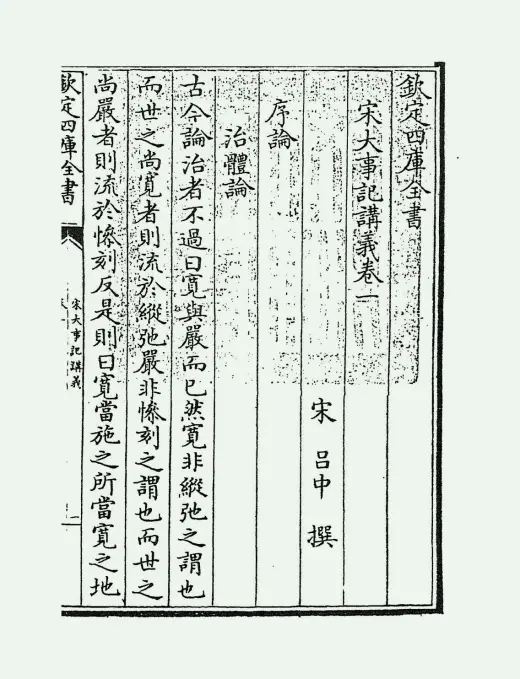 欽定四庫全書
宋大事記講義卷一
宋 呂中 撰
序論
治體論
古今論治者不過曰寛與嚴而已然寛非縱弛之謂也
而世之尚寛者則流於縱弛嚴非慘刻之謂也而世之
尚嚴者則流於慘刻反是則曰寛當施之所當寛之地
欽定四庫全書
宋大事記講義
一